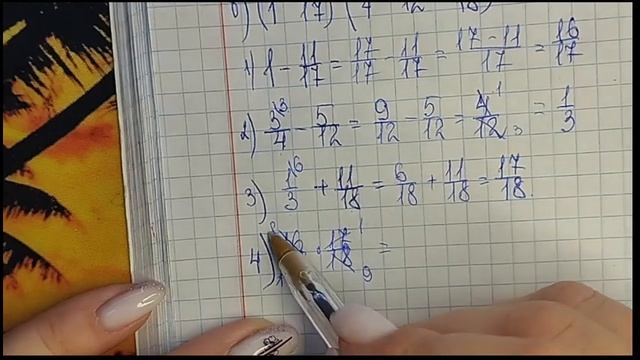 б) (1   17) (4   12   18)
1) 1 - 11/17 = 17/17 - 11/17 = 17-11/17 = 16/17
2) 3^3/4 - 5/12 = 9/12 - 5/12 = 4^1/12_3 = 1/3
3) 1^6/3 + 11/18 = 6/18 + 11/18 = 17/18.
4) 16 · 17^1/18_9 =